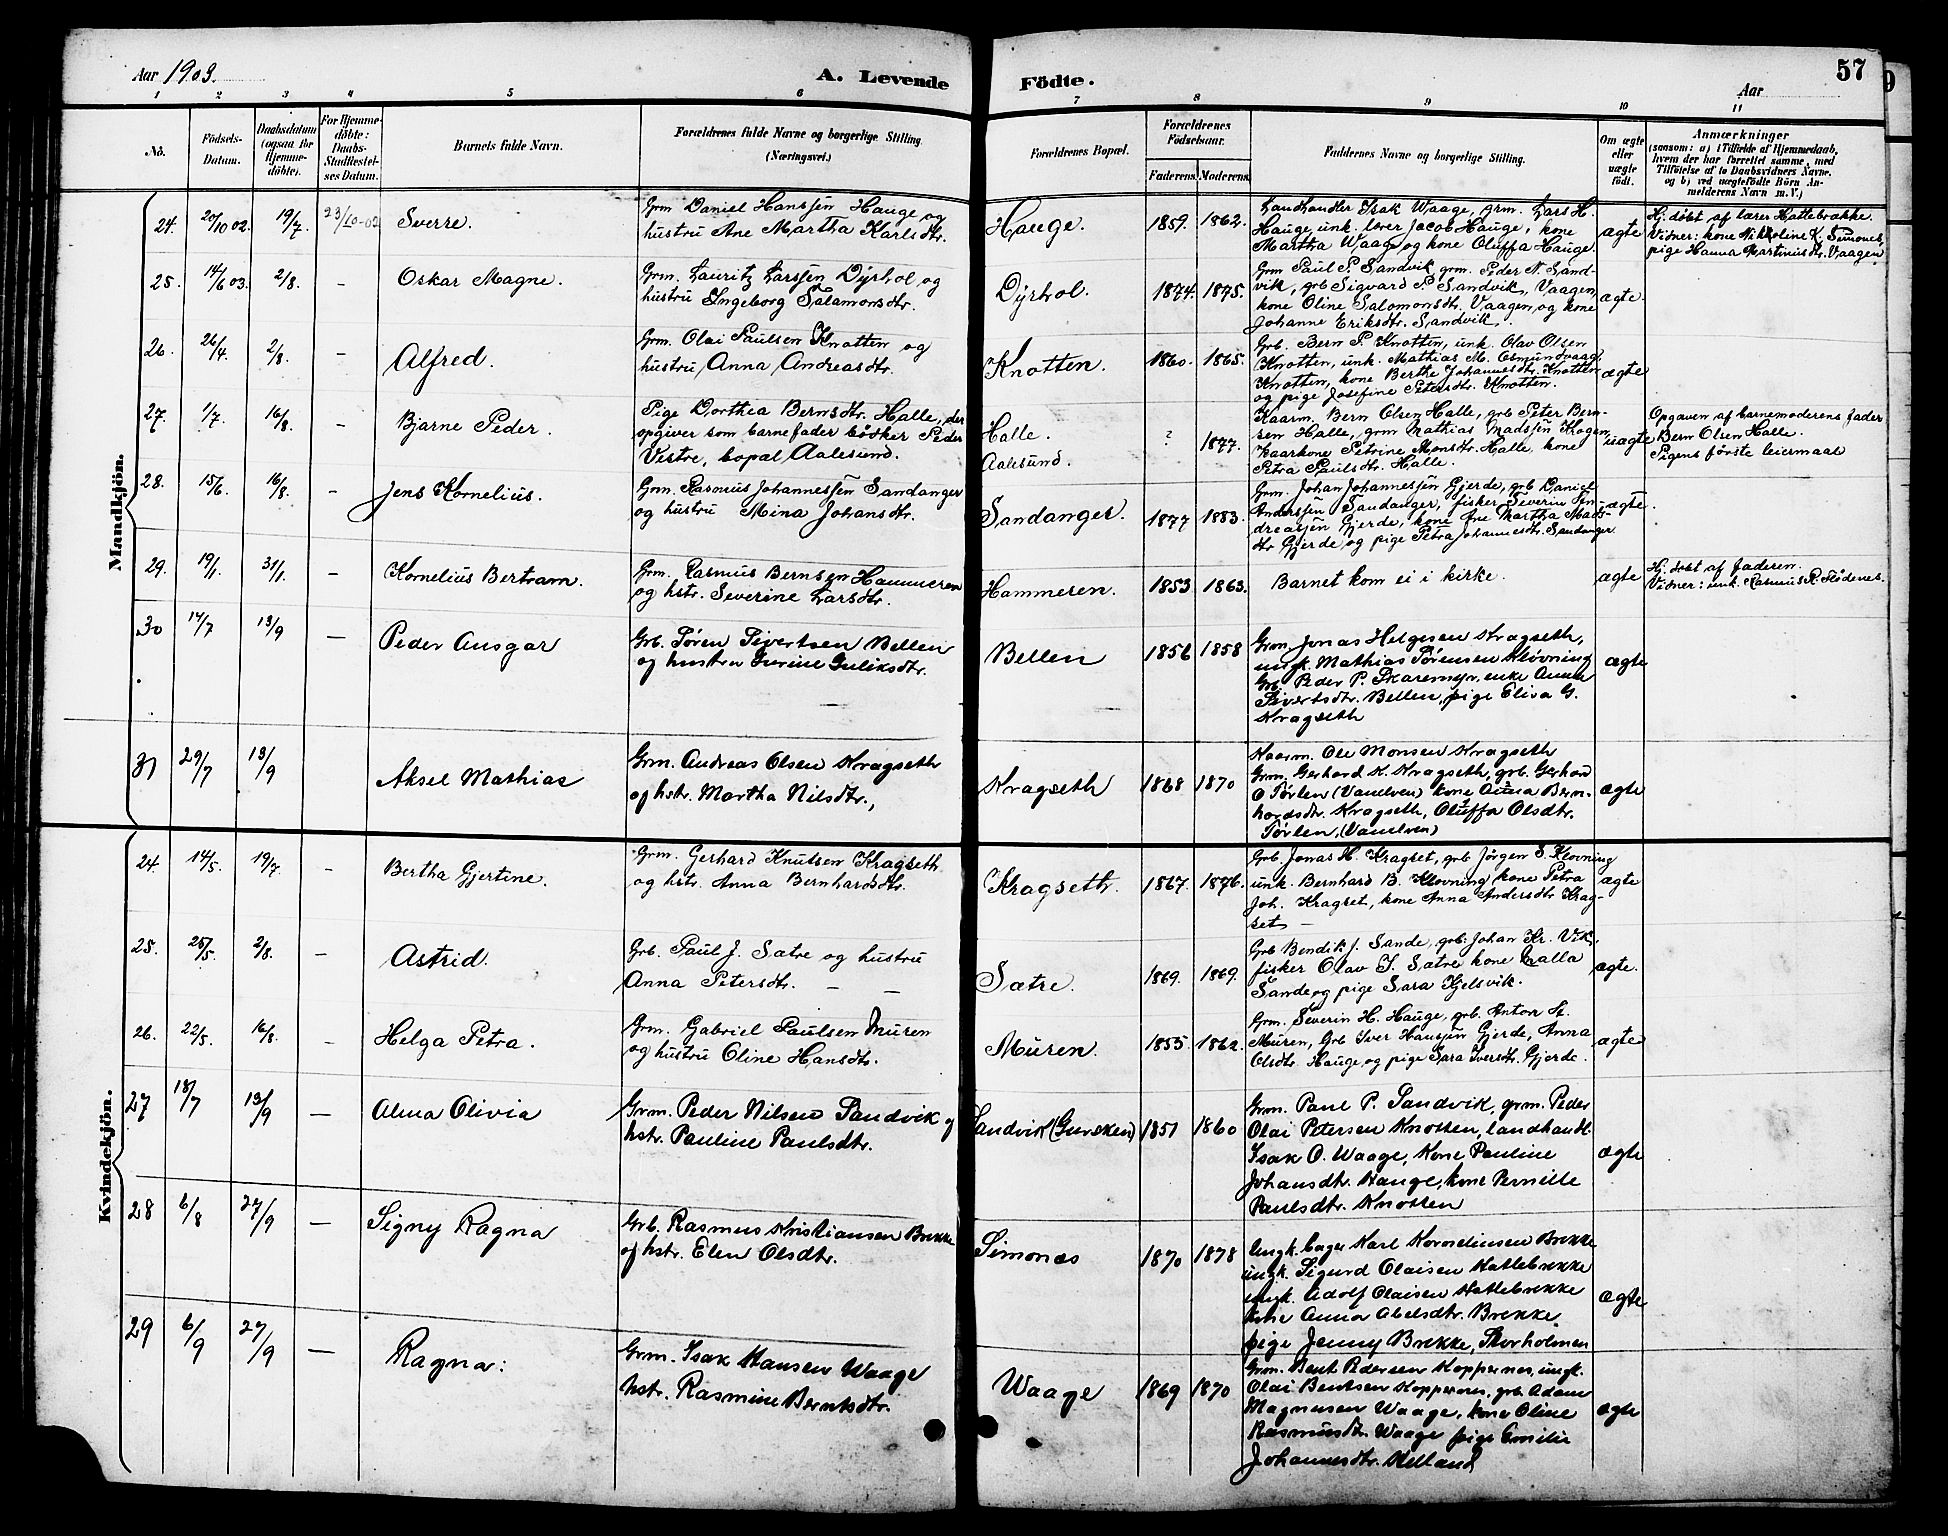 Aar 1903.
A. Levende
Födte.
Aar
57
1 2 3 4 5 6
7 8 9 10 11
No.
Födsels-
Datum.
Daabsdatum
(ogsaa for
Hjemme-
döbte).
For Hjemme-
döbte:
Daabs-
Stadfæstel-
ses Datum.
Barnets fulde Navn.
Forældrenes fulde Navne og borgerlige Stilling.
(Næringsvei.)
Forældrenes Bopæl.
Forældrenes
Födselsaar.
Faderens. Moderens.
Faddernes Navne og borgerlige Stilling.
Om ægte
eller
uægte
födt.
Anmærkninger
(saasom: a) i Tilfælde af Hjemmedaab,
hvem der har forrettet samme, med
Tilföielse af to Daabsvidners Navne.
og b) ved uægtefödte Börn An-
melderens Navn m. V.)
Mandkjön.
24. 20/10 02. 19/7. 23/10-02 Sverre.
Grm Daniel Hanssen Hauge og
hustru Ane Martha Karlsdtr.
Hauge. 1859. 1862.
Landhandler Isak Waage, grm. Lars H.
Hauge, unk. lærer Jacob Hauge, kone
Martha Waage og kone Oluffa Hauge.
ægte
Hj. döbt af lærer Hattebrække.
Vidner: kone Nikoline K. Simones,
pige Hanna Martinusdtr. Vaagen
25. 14/6 03. 2/8. - Oskar Magne.
Grm. Lauritz Larssen Dyrhol og
hustru Ingeborg Salamonsdtr.
Dyrhol. 1874. 1875.
Grm Paul P. Sandvik, grm. Peder N. Sand-
vik, grb Sigvard P. Sandvik, Vaagen,
kone Oline Salomonsdtr. Vaagen, og kone
Johanne Eriksdtr. Sandvik.
ægte.
26. 26/4. 2/8. - Alfred.
Grm. Olai Paulsen Knotten og
hustru Anna Andreasdtr.
Knotten. 1860. 1865.
Grb. Bern P. Knotten, unk. Olav Olsen
Knotten, unk. Mathias M. Osmundvaag,
Knotten, kone Berthe Johannesdtr. Knotten
og pige Josefine Petersdtr. Knotten.
ægte
27. 1/7. 16/8. - Bjarne Peder.
Pige Dorthea Bernsdtr. Halle, der
opgiver som barnefader bödker Peder
Vestre, bopal Aalesund.
Halle.
Aalesund.
? 1877.
Kaarm. Bern Olsen Halle, grb Peter Bern-
sen Halle, grm Mathias Madssen Kragen
kaarkone Petrine Monsdtr. Halle, kone
Petra Paulsdtr. Halle.
uægte
Opgaven af barnemoderens fader
Bern Olsen Halle.
Pigens förste leiermaal
28. 15/6. 16/8. - Jens Kornelius.
Grm. Rasmus Johannessen Sandanger
og hustru Mina Johansdtr.
Sandanger. 1877 1883.
Grm. Johan Johannessen Gjerde, grb Daniel
Anderssen Sandanger, fisker Severin An-
dreassen Gjerde, kone Ane Martha Mads-
dtr Gjerde, og pige Petra Johannesdtr. Sandanger
ægte.
29. 19/1. 31/1. - Kornelius Bertram.
Grm. Rasmus Bernsen Hammeren
og hstr. Severine Larsdtr.
Hammeren. 1853 1863.
Barnet kom ei i kirke.
ægte
Hj. döbt af faderen.
Vidner: unk. Rasmus R. Flödenes.
30 14/7 13/9 - Peder Ansgar
Grb. Sören Sivertsen Bellen
og hustru Gurine Guliksdtr.
Bellen 1856 1858
Grm. Jonas Helgesen Kragseth,
ungk. Mathias Sörensen Klövning
Grb. Peder P. Skaremyr, enke Anne
Sivertsdtr. Bellen, pige Elisa G.
Kragseth
ægte
31 29/7 13/9 Aksel Mathias
Grm. Andreas Olsen Kragseth
og hstr. Martha Nilsdtr.,
Kragseth 1868 1870
Kaarm. Ole Monsen Kragseth
Grm. Gerhard K. Kragseth, grb. Gerhard
O Sörlen (Vanelven) kone Anna Bern-
hardsdtr. Kragseth, Oluffa Olsdtr.
Sörlen, (Vanelven)
ægte
Kvindekjön.
24. 14/5. 19/7. - Bertha Gjertine.
Grm. Gerhard Knutsen Kragseth
og hstr. Anna Bernhardsdtr.
Kragseth. 1867. 1876.
Grb. Jonas H. Kragset, grb Jörgen S. Klovning
unk. Bernhard B. Klovning kone Petra
Joh. Kragset, kone Anna Andersdtr Krag-
set
ægte
25. 25/5. 2/8. - Astrid.
Grb. Paul J. Sætre og hustru
Anna Petersdtr. - -
Sætre. 1869. 1869.
Grb Bendik J. Sande, grb. Johan Kr. Vik,
fisker Olav J. Sætre kone Malla
Sande og pige Sara Kjelsvik.
ægte.
26. 22/5. 16/8. - Helga Petra.
Grm. Gabriel Paulsen Muren
og hustru Oline Hansdtr.
Muren. 1855. 1862.
Grm. Severin H. Hauge, grb. Anton H.
Muren, Grb Iver Hanssen Gjerde, Anna
Olsdtr. Hauge, og pige Sara Iversdtr. Gjerde.
ægte
27 18/7 13/9 - Alma Olivia
Grm. Peder Nilsen Sandvik og
hstr. Pauline Paulsdtr.
Sandvik (Gursken) 1851 1860
Grm. Paul P. Sandvik, grm. Peder
Olai Petersen Knotten, landhandl.
Isak O. Waage, Kone Pauline
Johansdtr. Hauge, kone Pernille
Paulsdtr. Knotten
ægte
28 6/8 27/9 - Signy Ragna
Grb. Rasmus Kristiansen Brekke
og hstr. Elen Olsdtr.
Simones 1870 1878
Ungk. bager Karl Korneliusen Brekke
ungk. Sigurd Olaisen Hattebrekke
ungk. Adolf Olaisen Hattebrekke
Anna Abelsdtr. Brekke,
pige Jenny Brekke, Storholmen
ægte
29 6/9 27/9 - Ragna:
Grm. Isak Hansen Waage
hstr. Rasmine Berntsdtr.
Waage 1869 1870
Grm. Bent Pedersen Koppernes, ungk.
Olai Bentsen Koppernes, grb. Adam
Magnusen Waage, kone Oline
Rasmusdtr. Waage pige Emilie
Johannesdtr. Kelland
ægte